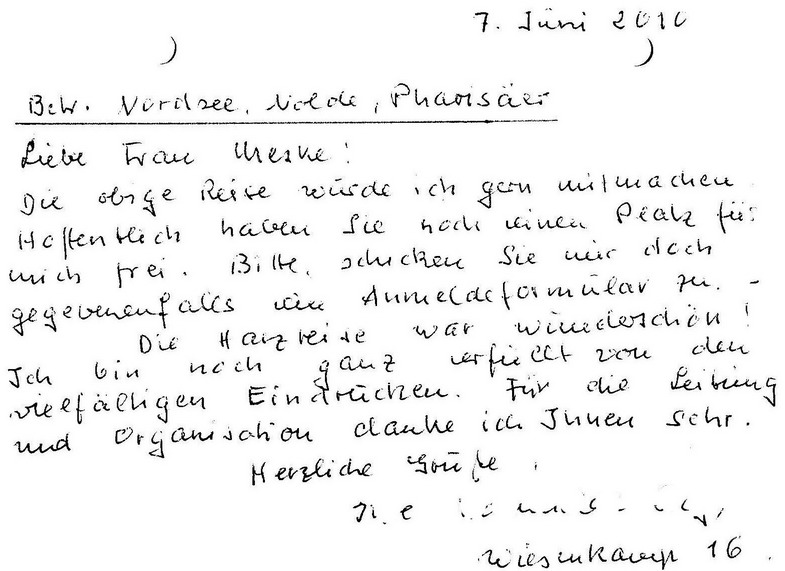 7. Juni 2010
Betr. Nordsee, Nolde, Pharisäer
Liebe Frau Meske!
Die obige Reise würde ich gern mitmachen.
Hoffentlich haben Sie noch einen Platz für
mich frei. Bitte, schicken Sie mir doch
gegebenenfalls ein Anmeldeformular zu. -
Die Harzreise war wunderschön!
Ich bin noch ganz erfüllt von den
vielfältigen Eindrücken. Für die Leitung
und Organisation danke ich Ihnen sehr.
Herzliche Grüße
Wiesenkamp 16.